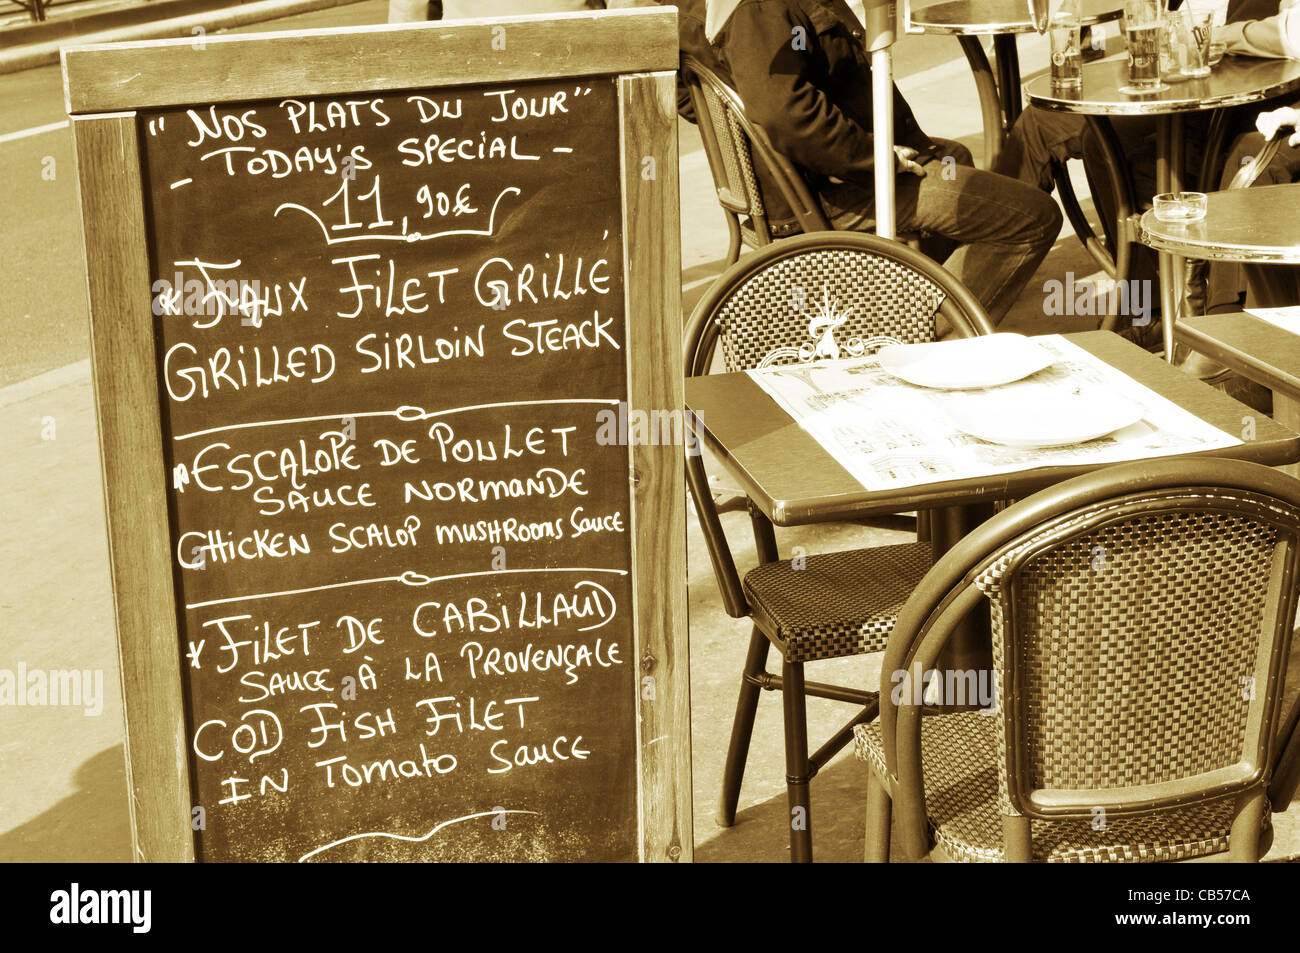 " NOS PLATS DU JOUR "
- TODAY'S SPECIAL -
11,90€
* FAUX FILET GRILLÉ
GRILLED SIRLOIN STEACK
* ESCALOPE DE POULET
SAUCE NORMANDE
CHICKEN SCALOP MUSHROOMS SAUCE
* FILET DE CABILLAUD
SAUCE À LA PROVENÇALE
COD FISH FILET
IN TOMATO SAUCE
alamy
Image ID: CB57CA
www.alamy.com